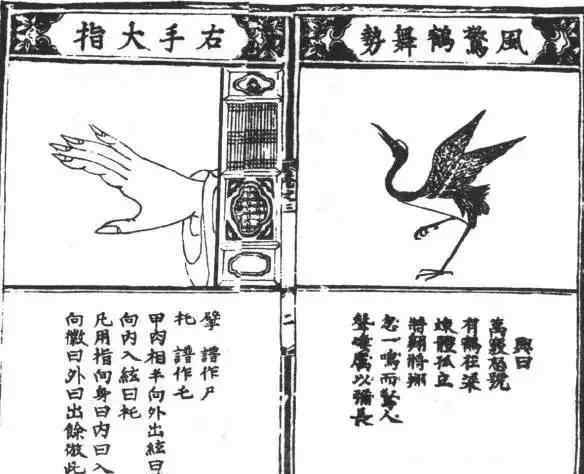 風驚鶴舞勢
興曰
萬竅怒號
有鶴在梁
竦體孤立
將翱將翔
忽一鳴而驚人
聲厲以彌長
二
右手大指
擘 譜作尸
托 譜作乇
甲肉相半向外出絃曰
向内入絃曰托
凡用指向身曰内曰入
向徽曰外曰出餘倣此